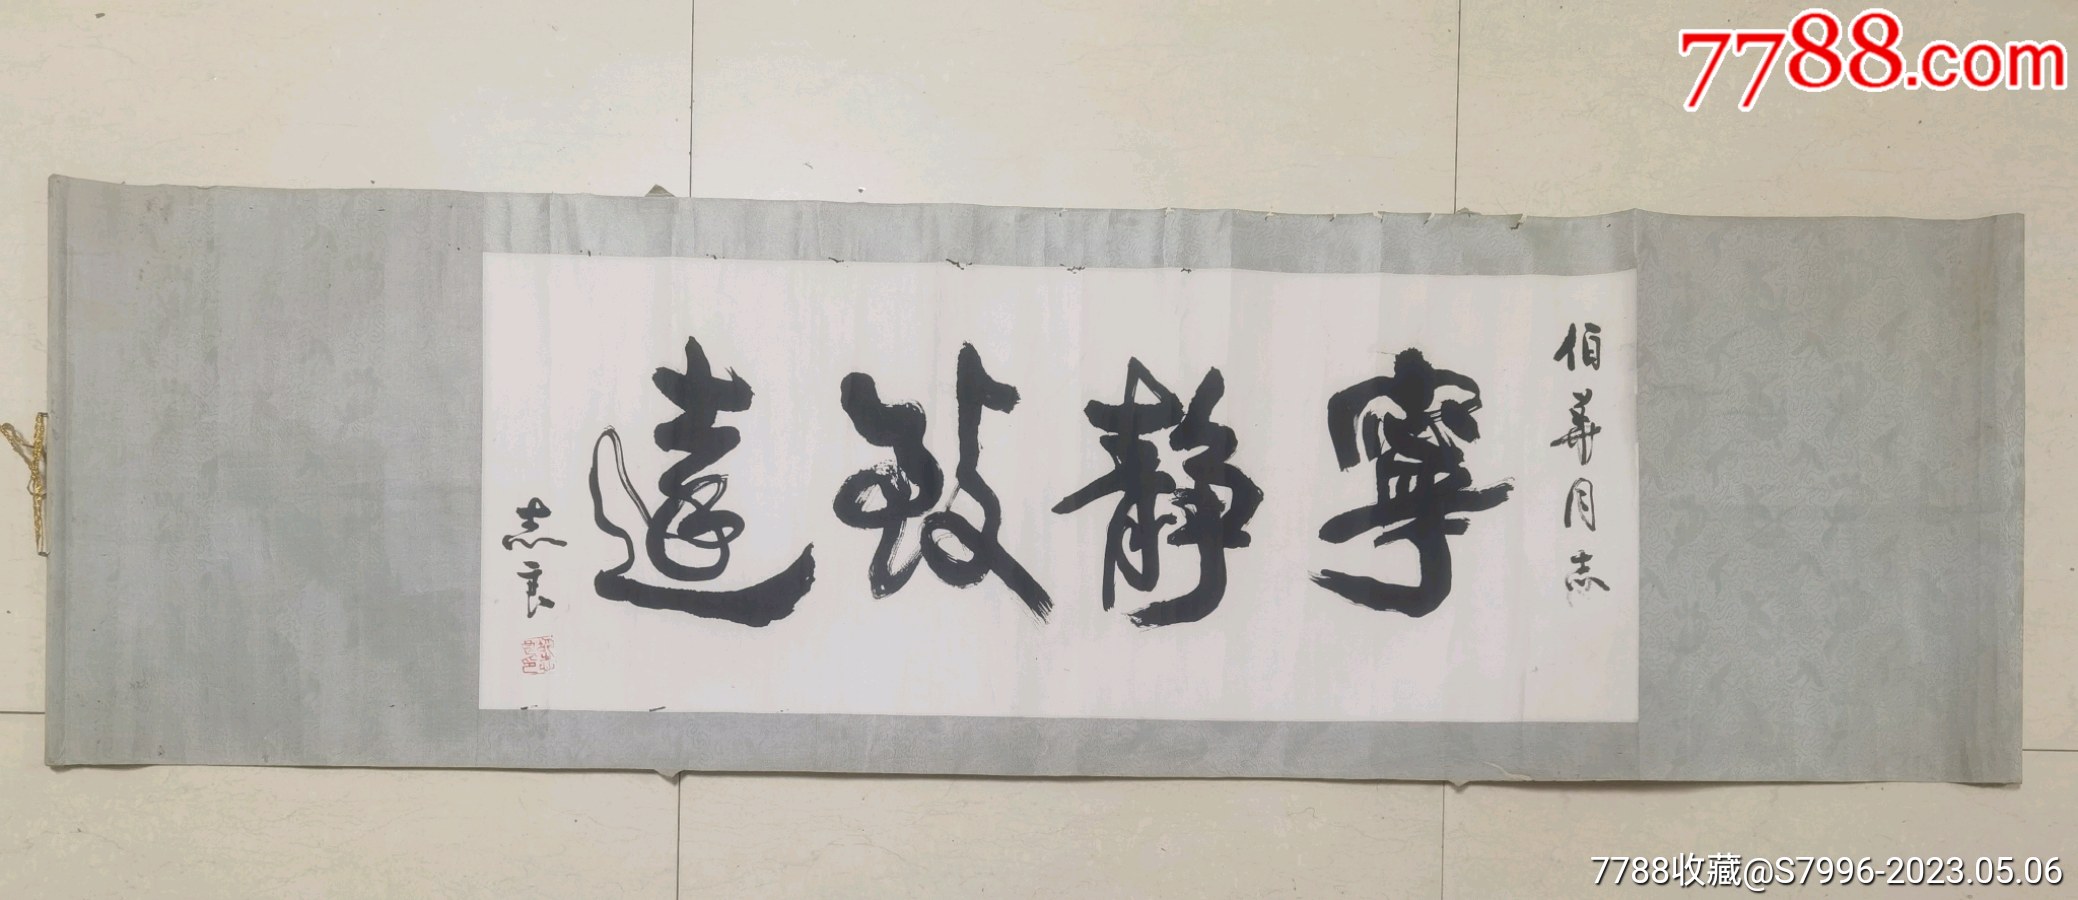 7788.com
伯華同志
寧靜致遠
志良
7788收藏@S7996-2023.05.06